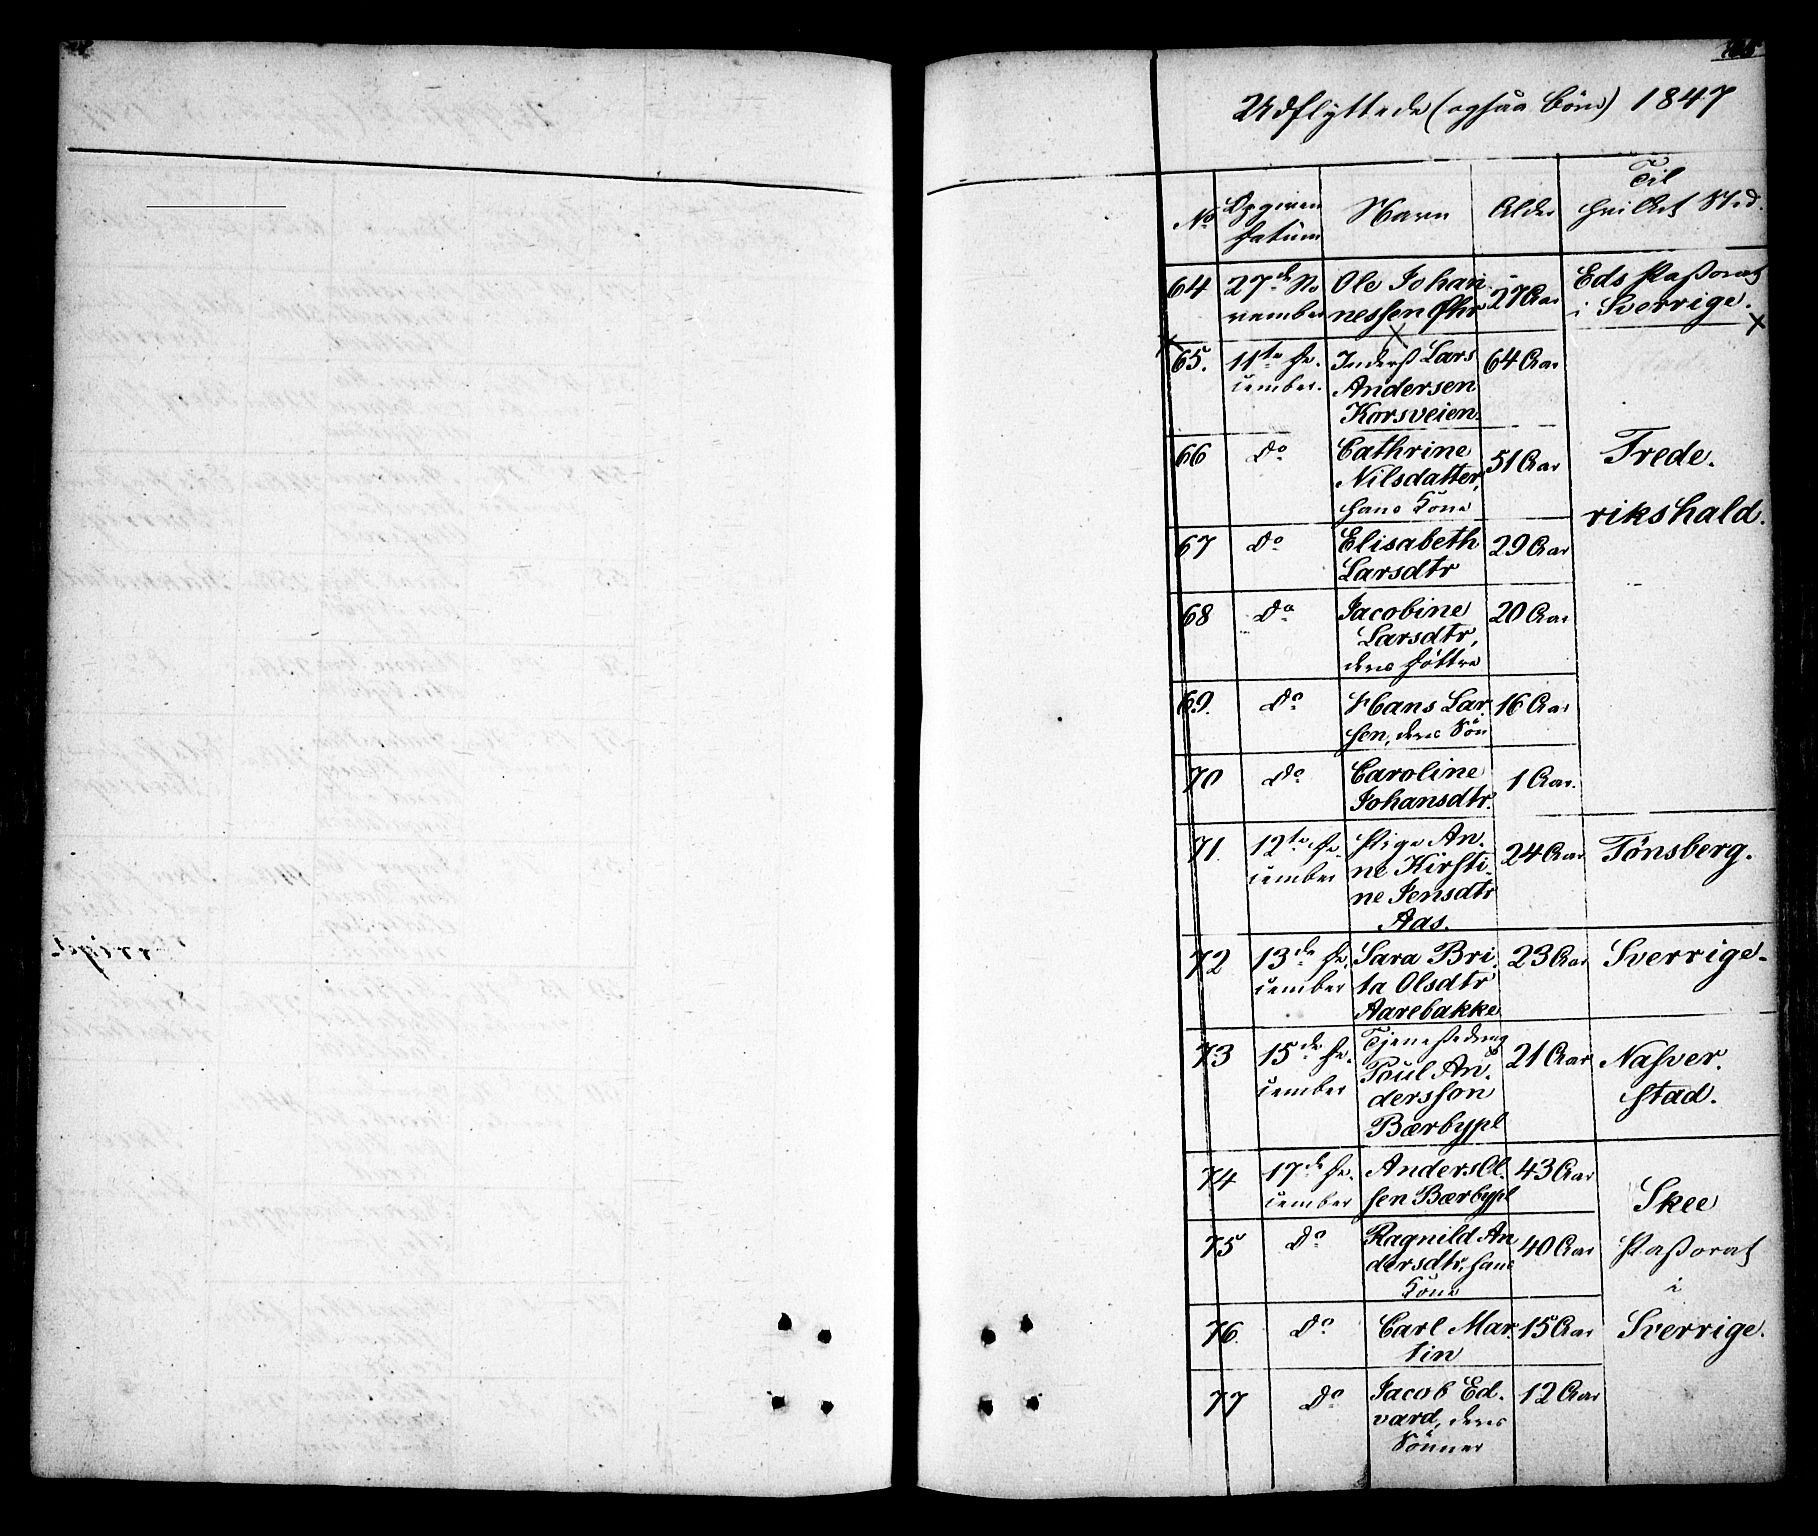 Udflyttede (ogsaa Börn) 1847
No
Opgiven
Datum
Navn
Alder
Til
hvilket Sted.
64
27de No
vember
Ole Johan
nessen Øhr
27 Aar
Eds Pastorat
i Sverrige.
65.
11te De.
cember.
Inderst Lars
Andersen
Korsveien.
64 Aar
Frede.
rikshald.
66
Do
Cathrine
Nilsdatter,
hans Kone
51 Aar
67
Do
Elisabeth
Larsdtr
29 Aar
68
Do
Jacobine
Larsdtr,
deres Döttre
20 Aar
69.
Do
Hans Lar
sen, deres Sön
16 Aar
70
Do
Caroline
Johansdtr.
1 Aar.
71.
12te De.
cember
Pige An.
ne Kirsti.
ne Jensdtr
Aas.
24 Aar
Tönsberg.
72
13de De.
cember
Sara Bri.
ta Olsdtr
Aarebakke
23 Aar
Sverrige.
73
15de De.
cember
Tjenestedreng
Poul An.
dersson
Bærbypl
21 Aar
Nasver.
stad.
74
17de De.
cember
Anders Ol.
sen Bærbypl
43 Aar
Skee
Pastorat
i
Sverrige.
75
Do
Ragnild An
dersdtr, hans
Kone
40 Aar
76.
Do
Carl Mar
tin
15 Aar
77
Do
Jacob Ed.
vard, deres
Sönner
12 Aar